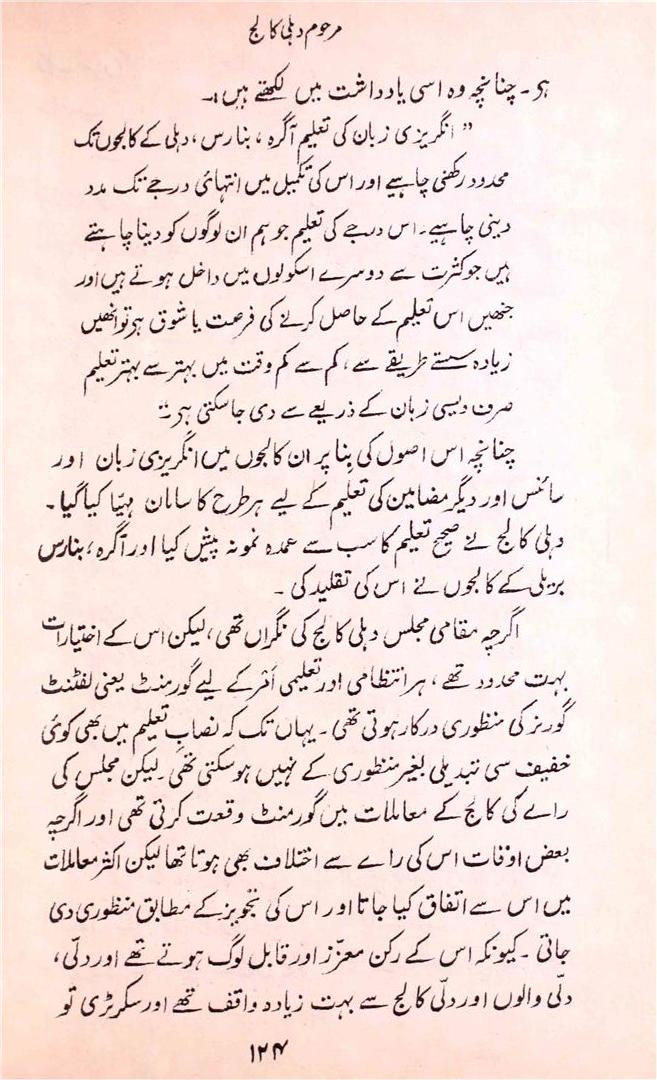 مرحوم دہلی کالج
ہی ۔ چنانچہ وہ اسی یادداشت میں لکھتے ہیں :۔
” انگریزی زبان کی تعلیم آگرہ ، بنارس ، دہلی کے کالجوں تک
محدود رکھنی چاہیے اور اس کی تکمیل میں انتہائی درجے تک مدد
دینی چاہیے ۔ اس درجے کی تعلیم جو ہم ان لوگوں کو دینا چاہتے
ہیں جو کثرت سے دوسرے اسکولوں میں داخل ہوتے ہیں اور
جنھیں اس تعلیم کے حاصل کرنے کی فرصت یا شوق ہو تو انھیں
زیادہ سستے طریقے سے ، کم سے کم وقت میں بہتر سے بہتر تعلیم
صرف دیسی زبان کے ذریعے سے دی جا سکتی ہی ۔“
چنانچہ اس اصول کی بنا پر ان کالجوں میں انگریزی زبان اور
سائنس اور دیگر مضامین کی تعلیم کے لیے ہر طرح کا سامان مہیّا کیا گیا ۔
دہلی کالج نے صحیح تعلیم کا سب سے عمدہ نمونہ پیش کیا اور آگرہ ، بنارس
بریلی کے کالجوں نے اس کی تقلید کی ۔
اگرچہ مقامی مجلس دہلی کالج کی نگراں تھی ، لیکن اس کے اختیارات
بہت محدود تھے ، ہر انتظامی اور تعلیمی امر کے لیے گورمنٹ یعنی لفٹنٹ
گورنر کی منظوری درکار ہوتی تھی ۔ یہاں تک کہ نصابِ تعلیم میں بھی کوئی
خفیف سی تبدیلی بغیر منظوری کے نہیں ہو سکتی تھی ۔ لیکن مجلس کی
رائے کی کالج کے معاملات میں گورمنٹ وقعت کرتی تھی اور اگرچہ
بعض اوقات اس کی رائے سے اختلاف بھی ہوتا تھا لیکن اکثر معاملات
میں اس سے اتفاق کیا جاتا اور اس کی تجویز کے مطابق منظوری دی
جاتی ۔ کیونکہ اس کے رکن معزّز اور قابل لوگ ہوتے تھے اور دلّی ،
دلّی والوں اور دلّی کالج سے بہت زیادہ واقف تھے اور سکرٹری تو
۱۲۴